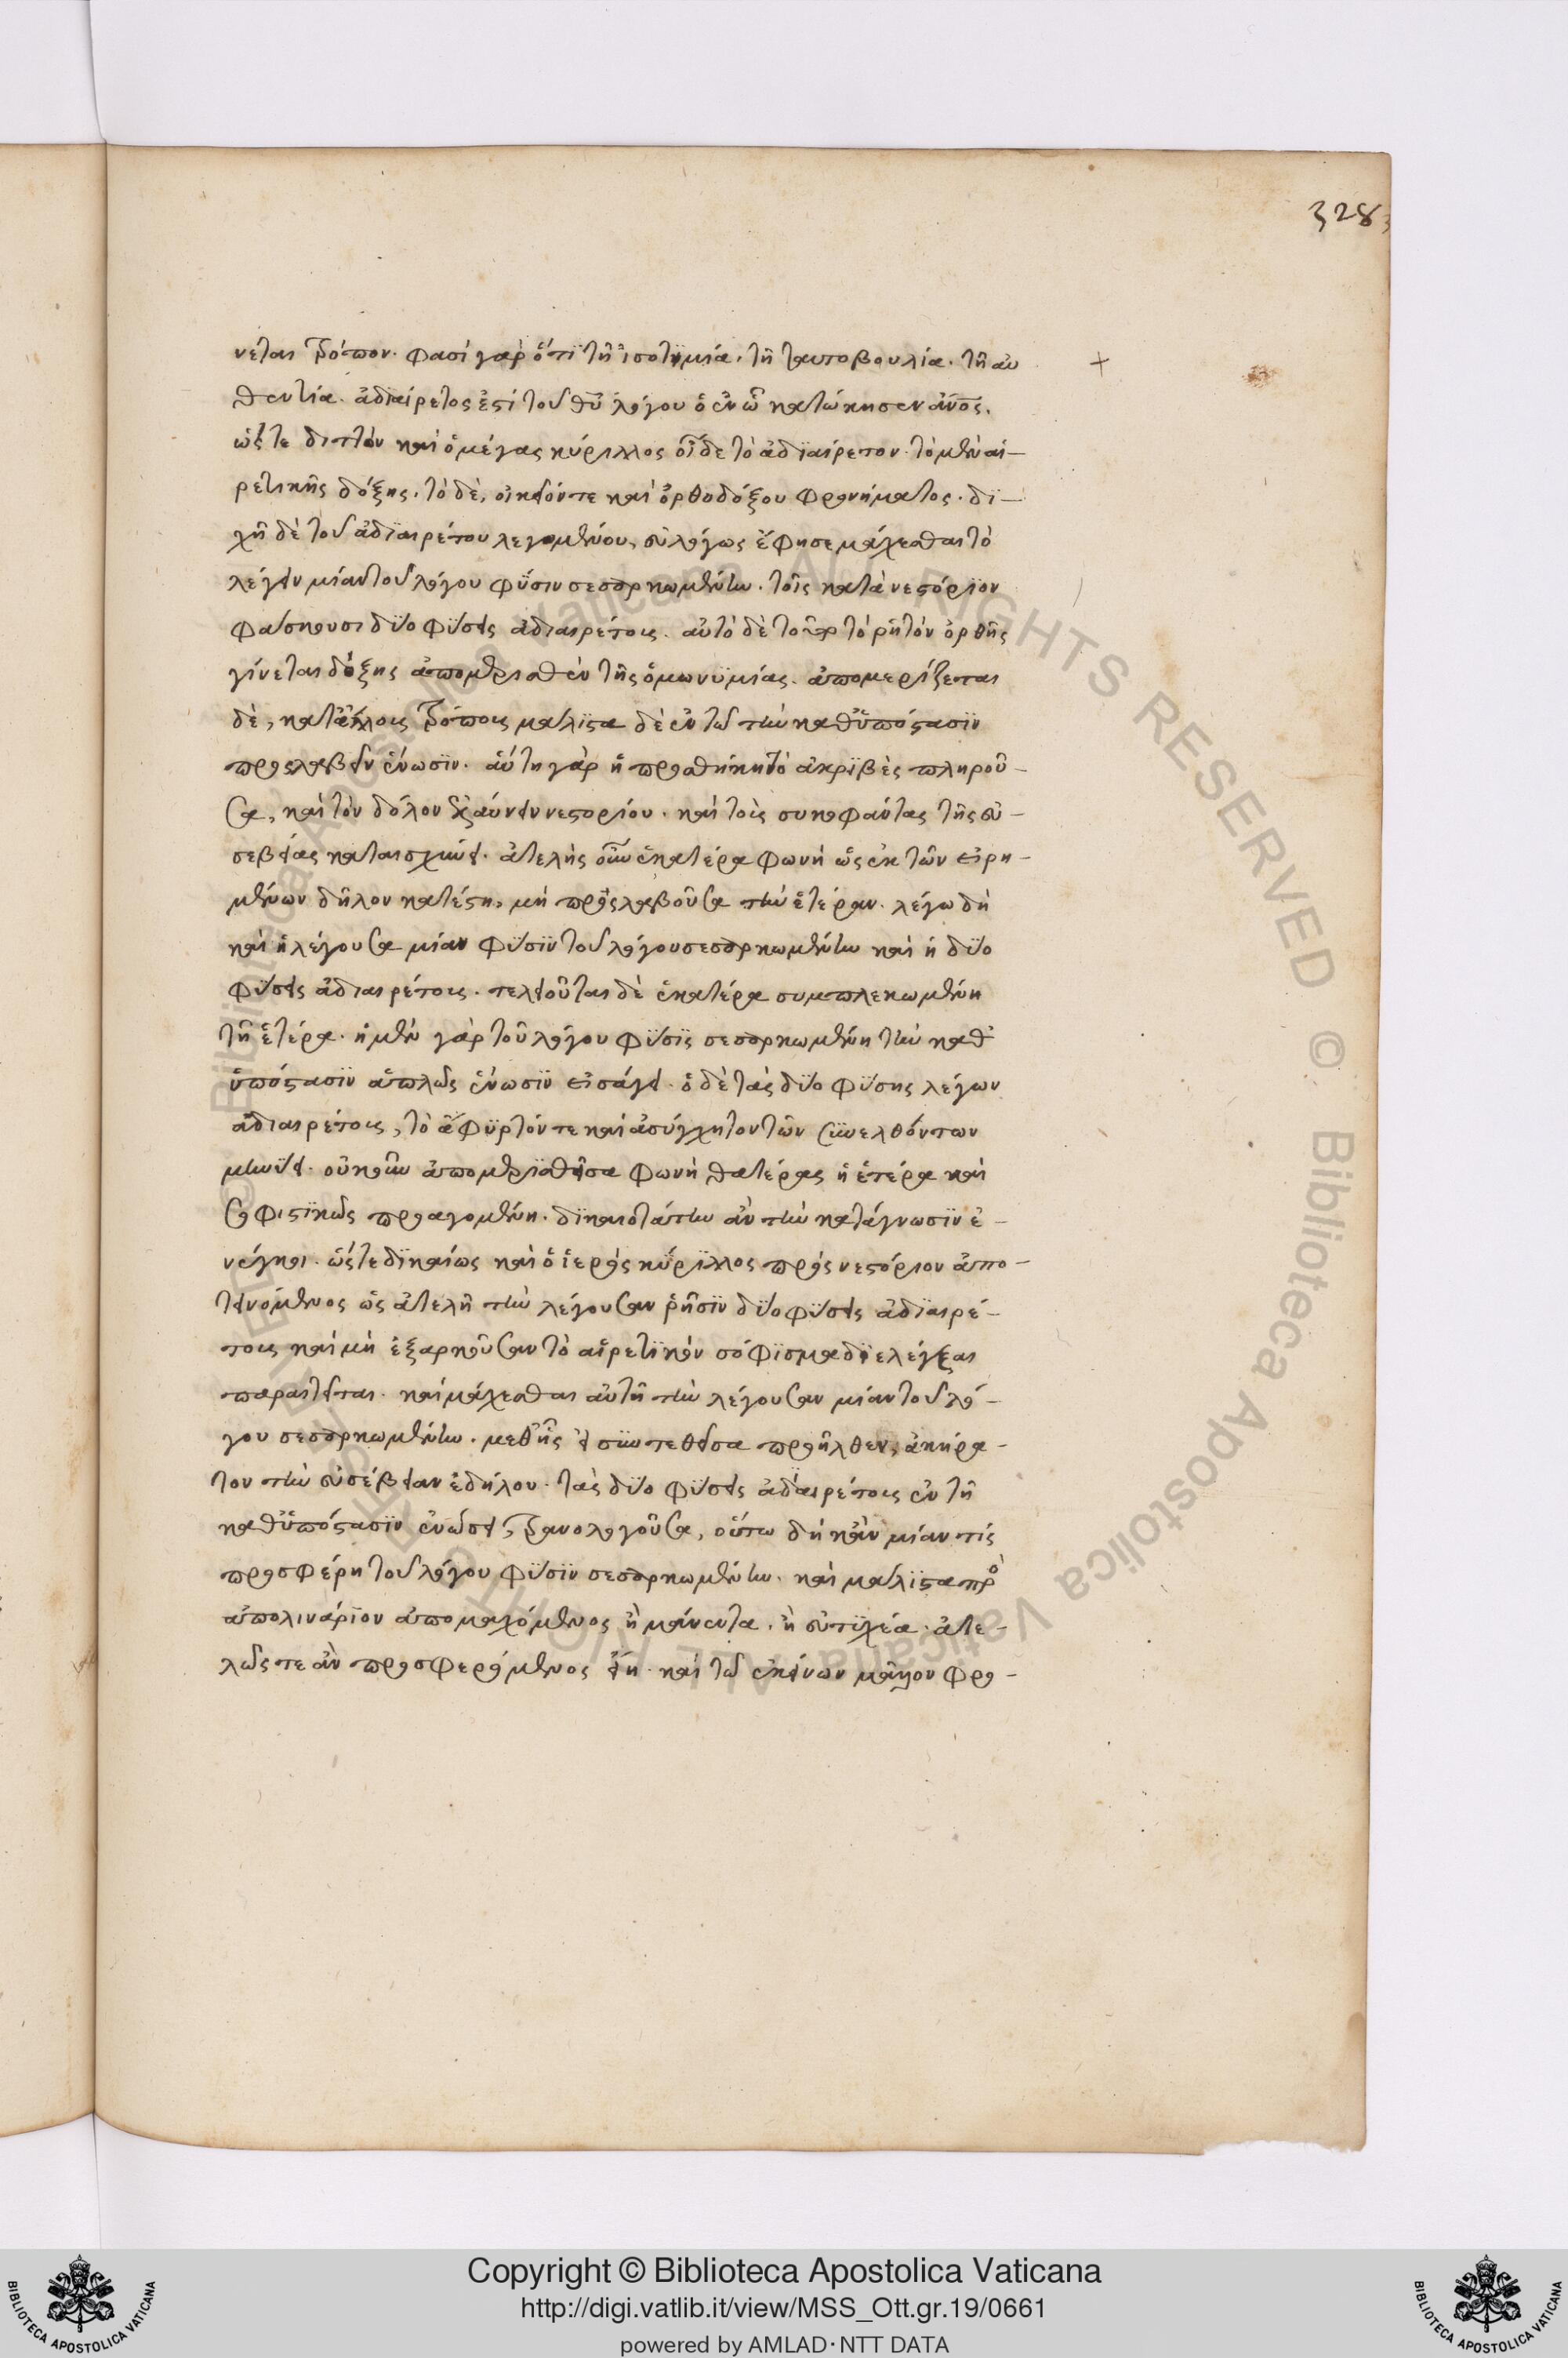 328
νεται τρόπον. φασί γαρ ὅτι τῆ ἰσοτιμία. τῆ ταυτοβουλία. τῆ αυ
θεντία. ἀδιαίρετος ἐστί τοῦ θυ λόγου ὁ ἐν ὧ κατώκησεν ἀνος.
ὥστε διττὸν καὶ ὁ μέγας κύριλλος οἶδε τὸ ἀδιαίρετον. τὸ μὲν αἱ-
ρετικῆς δόξης. τὸ δὲ, οἰκεῖόν τε καὶ ὀρθοδόξου φρονήματος. δι-
χῆ δὲ τοῦ ἀδιαιρέτου λεγομένου, εὐλόγως ἔφησε μάχεσθαι τὸ
λέγειν μίαν τοῦ λόγου φύσιν σεσαρκωμένην. τοῖς κατὰ νεστόριον
φάσκουσι δύο φύσεις ἀδιαιρέτους. αὐτὸ δὲ τοῦτο τὸ ρητὸν ὀρθῆς
γίνεται δόξης ἀπομερισθὲν τῆς ὁμωνυμίας. ἀπομερίζεται
δὲ, κατ' ἄλλους τρόπους μάλιστα δὲ ἐν τῶ τὴν καθ' ὑπόστασιν
προσλαβεῖν ἕνωσιν. αὕτη γὰρ ἡ προσθήκη τὸ ἀκριβὲς πληροῦ-
σα, καὶ τὸν δόλον ἐξαίρει νεστορίου. καὶ τοὺς συκοφάντας τῆς εὐ-
σεβείας καταισχύνει. ἀτελὴς οὖν ἑκατέρα φωνὴ ὡς ἐκ τῶν εἰρη-
μένων δῆλον κατέστη, μὴ προσλαβοῦσα τὴν ἑτέραν. λέγω δὴ
καὶ ἡ λέγουσα μίαν φύσιν τοῦ λόγου σεσαρκωμένην καὶ ἡ δύο
φύσεις ἀδιαιρέτους. τελειοῦται δὲ ἑκατέρα συμπλεκωμένη
τῆ ἑτέρα. ἡ μὲν γὰρ τοῦ λόγου φύσις σεσαρκωμένη τὴν καθ'
ὑπόστασιν ἁπλῶς ἕνωσιν εἰσάγει. ὁ δὲ τὰς δύο φύσης λέγων
ἀδιαιρέτους, τὸ ἄφυρτόν τε καὶ ἀσύγχητον τῶν συνελθόντων
μηνύει. οὐκοῦν ἀπομερισθεῖσα φωνὴ θατέρας ἡ ἑτέρα καὶ
σοφιστικῶς προαγομένη. δικαιοτάτην ἂν τὴν κατάγνωσιν ἐ-
νέγκοι. ὥστε δικαίως καὶ ὁ ἱερὸς κύριλλος πρὸς νεστόριον ἀπο-
τεινόμενος ὡς ἀτελῆ τὴν λέγουσαν ῥῆσιν δύο φύσεις ἀδιαιρέ-
τους καὶ μὴ ἐξαρκοῦσαν τὸ αἱρετικὸν σόφισμα διελέγξαι
παραιτεῖται. καὶ μάχεσθαι αὐτῆ τὴν λέγουσαν μίαν τοῦ λό-
γου σεσαρκωμένην. μεθ' ἧς εἰ συντεθεῖσα προῆλθεν, ἀκήρα-
τον τὴν εὐσέβειαν ἐδήλου. τὰς δύο φύσεις ἀδιαιρέτους ἐν τῆ
καθ' ὑπόστασιν ἑνώσει τρανολογοῦσα, οὕτω δὴ κἂν μίαν τίς
προσφέρη τοῦ λόγου φύσιν σεσαρκωμένην. καὶ μάλιστα προ
ἀπολινάριον ἀπομαχόμενος ἢ μάνεντα. ἢ εὐτυχέα. ἀτε-
λῶς τε ἂν προσφερόμενος εἴη. καὶ τῶ ἐκείνων μᾶλλον φρο-
Copyright © Biblioteca Apostolica Vaticana
http://digi.vatlib.it/view/MSS_Ott.gr.19/0661
powered by AMLAD·NTT DATA